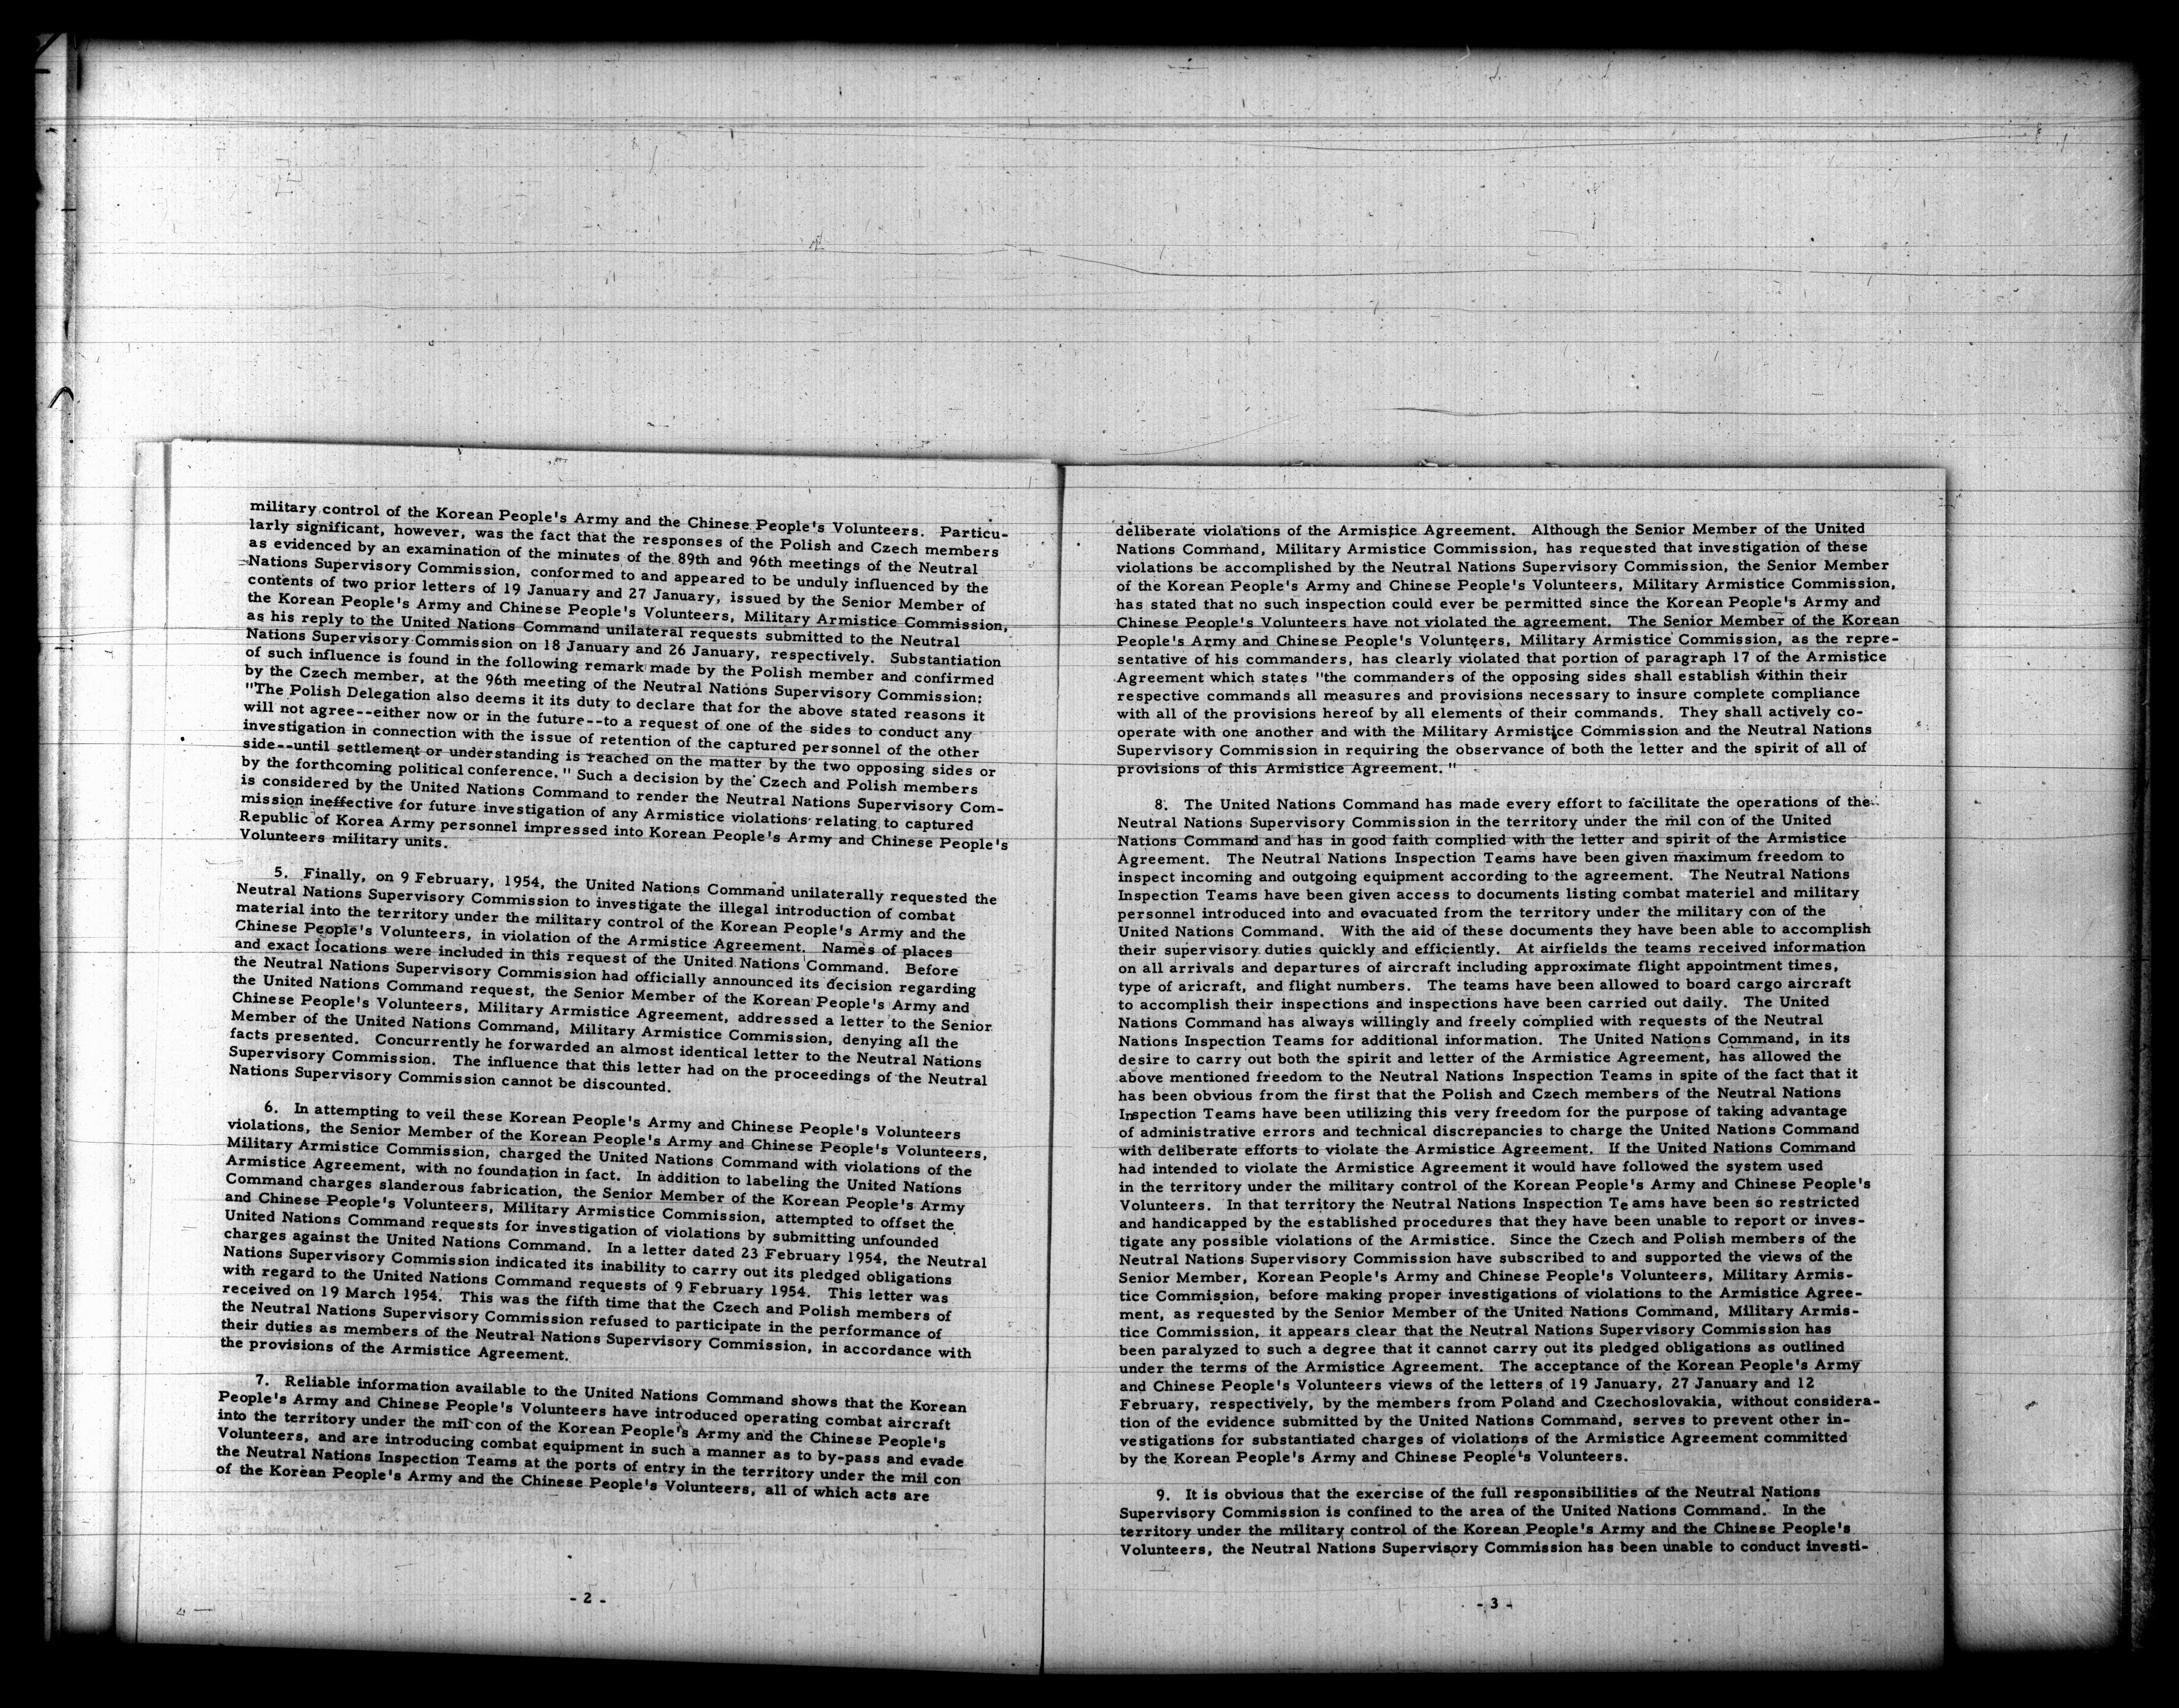 military control of the Korean People's Army and the Chinese People's Volunteers. Particu-
larly significant, however, was the fact that the responses of the Polish and Czech members
as evidenced by an examination of the minutes of the 89th and 96th meetings of the Neutral
Nations Supervisory Commission, conformed to and appeared to be unduly influenced by the
contents of two prior letters of 19 January and 27 January, issued by the Senior Member of
the Korean People's Army and Chinese People's Volunteers, Military Armistice Commission,
as his reply to the United Nations Command unilateral requests submitted to the Neutral
Nations Supervisory Commission on 18 January and 26 January, respectively. Substantiation
of such influence is found in the following remark made by the Polish member and confirmed
by the Czech member, at the 96th meeting of the Neutral Nations Supervisory Commission:
"The Polish Delegation also deems it its duty to declare that for the above stated reasons it
will not agree--either now or in the future--to a request of one of the sides to conduct any
investigation in connection with the issue of retention of the captured personnel of the other
side--until settlement or understanding is reached on the matter by the two opposing sides or
by the forthcoming political conference." Such a decision by the Czech and Polish members
is considered by the United Nations Command to render the Neutral Nations Supervisory Com-
mission ineffective for future investigation of any Armistice violations relating to captured
Republic of Korea Army personnel impressed into Korean People's Army and Chinese People's
Volunteers military units.
5. Finally, on 9 February, 1954, the United Nations Command unilaterally requested the
Neutral Nations Supervisory Commission to investigate the illegal introduction of combat
material into the territory under the military control of the Korean People's Army and the
Chinese People's Volunteers, in violation of the Armistice Agreement. Names of places
and exact locations were included in this request of the United Nations Command. Before
the Neutral Nations Supervisory Commission had officially announced its decision regarding
the United Nations Command request, the Senior Member of the Korean People's Army and
Chinese People's Volunteers, Military Armistice Agreement, addressed a letter to the Senior
Member of the United Nations Command, Military Armistice Commission, denying all the
facts presented. Concurrently he forwarded an almost identical letter to the Neutral Nations
Supervisory Commission. The influence that this letter had on the proceedings of the Neutral
Nations Supervisory Commission cannot be discounted.
6. In attempting to veil these Korean People's Army and Chinese People's Volunteers
violations, the Senior Member of the Korean People's Army and Chinese People's Volunteers,
Military Armistice Commission, charged the United Nations Command with violations of the
Armistice Agreement, with no foundation in fact. In addition to labeling the United Nations
Command charges slanderous fabrication, the Senior Member of the Korean People's Army
and Chinese People's Volunteers, Military Armistice Commission, attempted to offset the
United Nations Command requests for investigation of violations by submitting unfounded
charges against the United Nations Command. In a letter dated 23 February 1954, the Neutral
Nations Supervisory Commission indicated its inability to carry out its pledged obligations
with regard to the United Nations Command requests of 9 February 1954. This letter was
received on 19 March 1954. This was the fifth time that the Czech and Polish members of
the Neutral Nations Supervisory Commission refused to participate in the performance of
their duties as members of the Neutral Nations Supervisory Commission, in accordance with
the provisions of the Armistice Agreement.
7. Reliable information available to the United Nations Command shows that the Korean
People's Army and Chinese People's Volunteers have introduced operating combat aircraft
into the territory under the mil con of the Korean People's Army and the Chinese People's
Volunteers, and are introducing combat equipment in such a manner as to by-pass and evade
the Neutral Nations Inspection Teams at the ports of entry in the territory under the mil con
of the Korean People's Army and the Chinese People's Volunteers, all of which acts are
- 2 -
deliberate violations of the Armistice Agreement. Although the Senior Member of the United
Nations Command, Military Armistice Commission, has requested that investigation of these
violations be accomplished by the Neutral Nations Supervisory Commission, the Senior Member
of the Korean People's Army and Chinese People's Volunteers, Military Armistice Commission,
has stated that no such inspection could ever be permitted since the Korean People's Army and
Chinese People's Volunteers have not violated the agreement. The Senior Member of the Korean
People's Army and Chinese People's Volunteers, Military Armistice Commission, as the repre-
sentative of his commanders, has clearly violated that portion of paragraph 17 of the Armistice
Agreement which states "the commanders of the opposing sides shall establish within their
respective commands all measures and provisions necessary to insure complete compliance
with all of the provisions hereof by all elements of their commands. They shall actively co-
operate with one another and with the Military Armistice Commission and the Neutral Nations
Supervisory Commission in requiring the observance of both the letter and the spirit of all of
provisions of this Armistice Agreement."
8. The United Nations Command has made every effort to facilitate the operations of the
Neutral Nations Supervisory Commission in the territory under the mil con of the United
Nations Command and has in good faith complied with the letter and spirit of the Armistice
Agreement. The Neutral Nations Inspection Teams have been given maximum freedom to
inspect incoming and outgoing equipment according to the agreement. The Neutral Nations
Inspection Teams have been given access to documents listing combat materiel and military
personnel introduced into and evacuated from the territory under the military con of the
United Nations Command. With the aid of these documents they have been able to accomplish
their supervisory duties quickly and efficiently. At airfields the teams received information
on all arrivals and departures of aircraft including approximate flight appointment times,
type of aricraft, and flight numbers. The teams have been allowed to board cargo aircraft
to accomplish their inspections and inspections have been carried out daily. The United
Nations Command has always willingly and freely complied with requests of the Neutral
Nations Inspection Teams for additional information. The United Nations Command, in its
desire to carry out both the spirit and letter of the Armistice Agreement, has allowed the
above mentioned freedom to the Neutral Nations Inspection Teams in spite of the fact that it
has been obvious from the first that the Polish and Czech members of the Neutral Nations
Inspection Teams have been utilizing this very freedom for the purpose of taking advantage
of administrative errors and technical discrepancies to charge the United Nations Command
with deliberate efforts to violate the Armistice Agreement. If the United Nations Command
had intended to violate the Armistice Agreement it would have followed the system used
in the territory under the military control of the Korean People's Army and Chinese People's
Volunteers. In that territory the Neutral Nations Inspection Teams have been so restricted
and handicapped by the established procedures that they have been unable to report or inves-
tigate any possible violations of the Armistice. Since the Czech and Polish members of the
Neutral Nations Supervisory Commission have subscribed to and supported the views of the
Senior Member, Korean People's Army and Chinese People's Volunteers, Military Armis-
tice Commission, before making proper investigations of violations to the Armistice Agree-
ment, as requested by the Senior Member of the United Nations Command, Military Armis-
tice Commission, it appears clear that the Neutral Nations Supervisory Commission has
been paralyzed to such a degree that it cannot carry out its pledged obligations as outlined
under the terms of the Armistice Agreement. The acceptance of the Korean People's Army
and Chinese People's Volunteers views of the letters of 19 January, 27 January and 12
February, respectively, by the members from Poland and Czechoslovakia, without considera-
tion of the evidence submitted by the United Nations Command, serves to prevent other in-
vestigations for substantiated charges of violations of the Armistice Agreement committed
by the Korean People's Army and Chinese People's Volunteers.
9. It is obvious that the exercise of the full responsibilities of the Neutral Nations
Supervisory Commission is confined to the area of the United Nations Command. In the
territory under the military control of the Korean People's Army and the Chinese People's
Volunteers, the Neutral Nations Supervisory Commission has been unable to conduct investi-
- 3 -